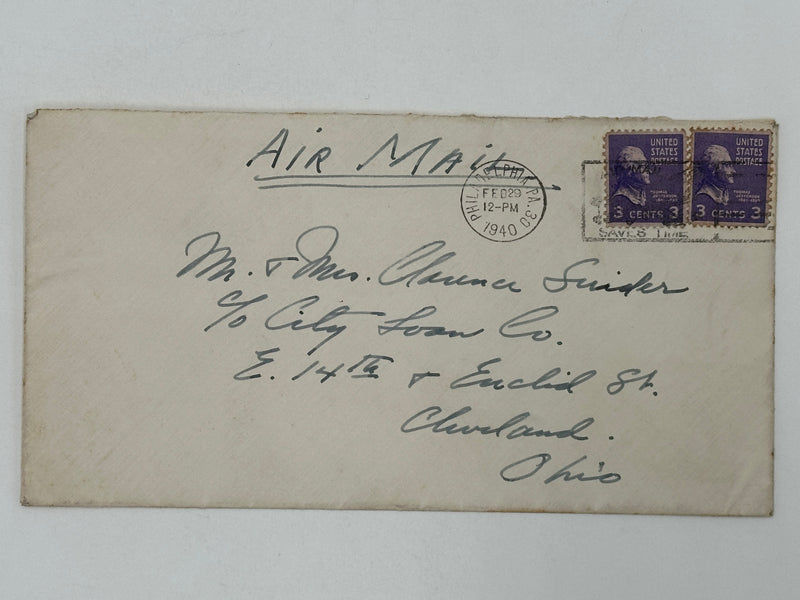 Air Mail
UNITED
STATES
POSTAGE
THOMAS
JEFFERSON
3 CENTS 3
UNITED
STATES
POSTAGE
THOMAS
JEFFERSON
3 CENTS 3
PHILADELPHIA, PA. 30
FEB 29
12-PM
1940
SAVES TIME
Mr. & Mrs. Clarence Snider
c/o City Loan Co.
E. 14th & Euclid St.
Cleveland.
Ohio